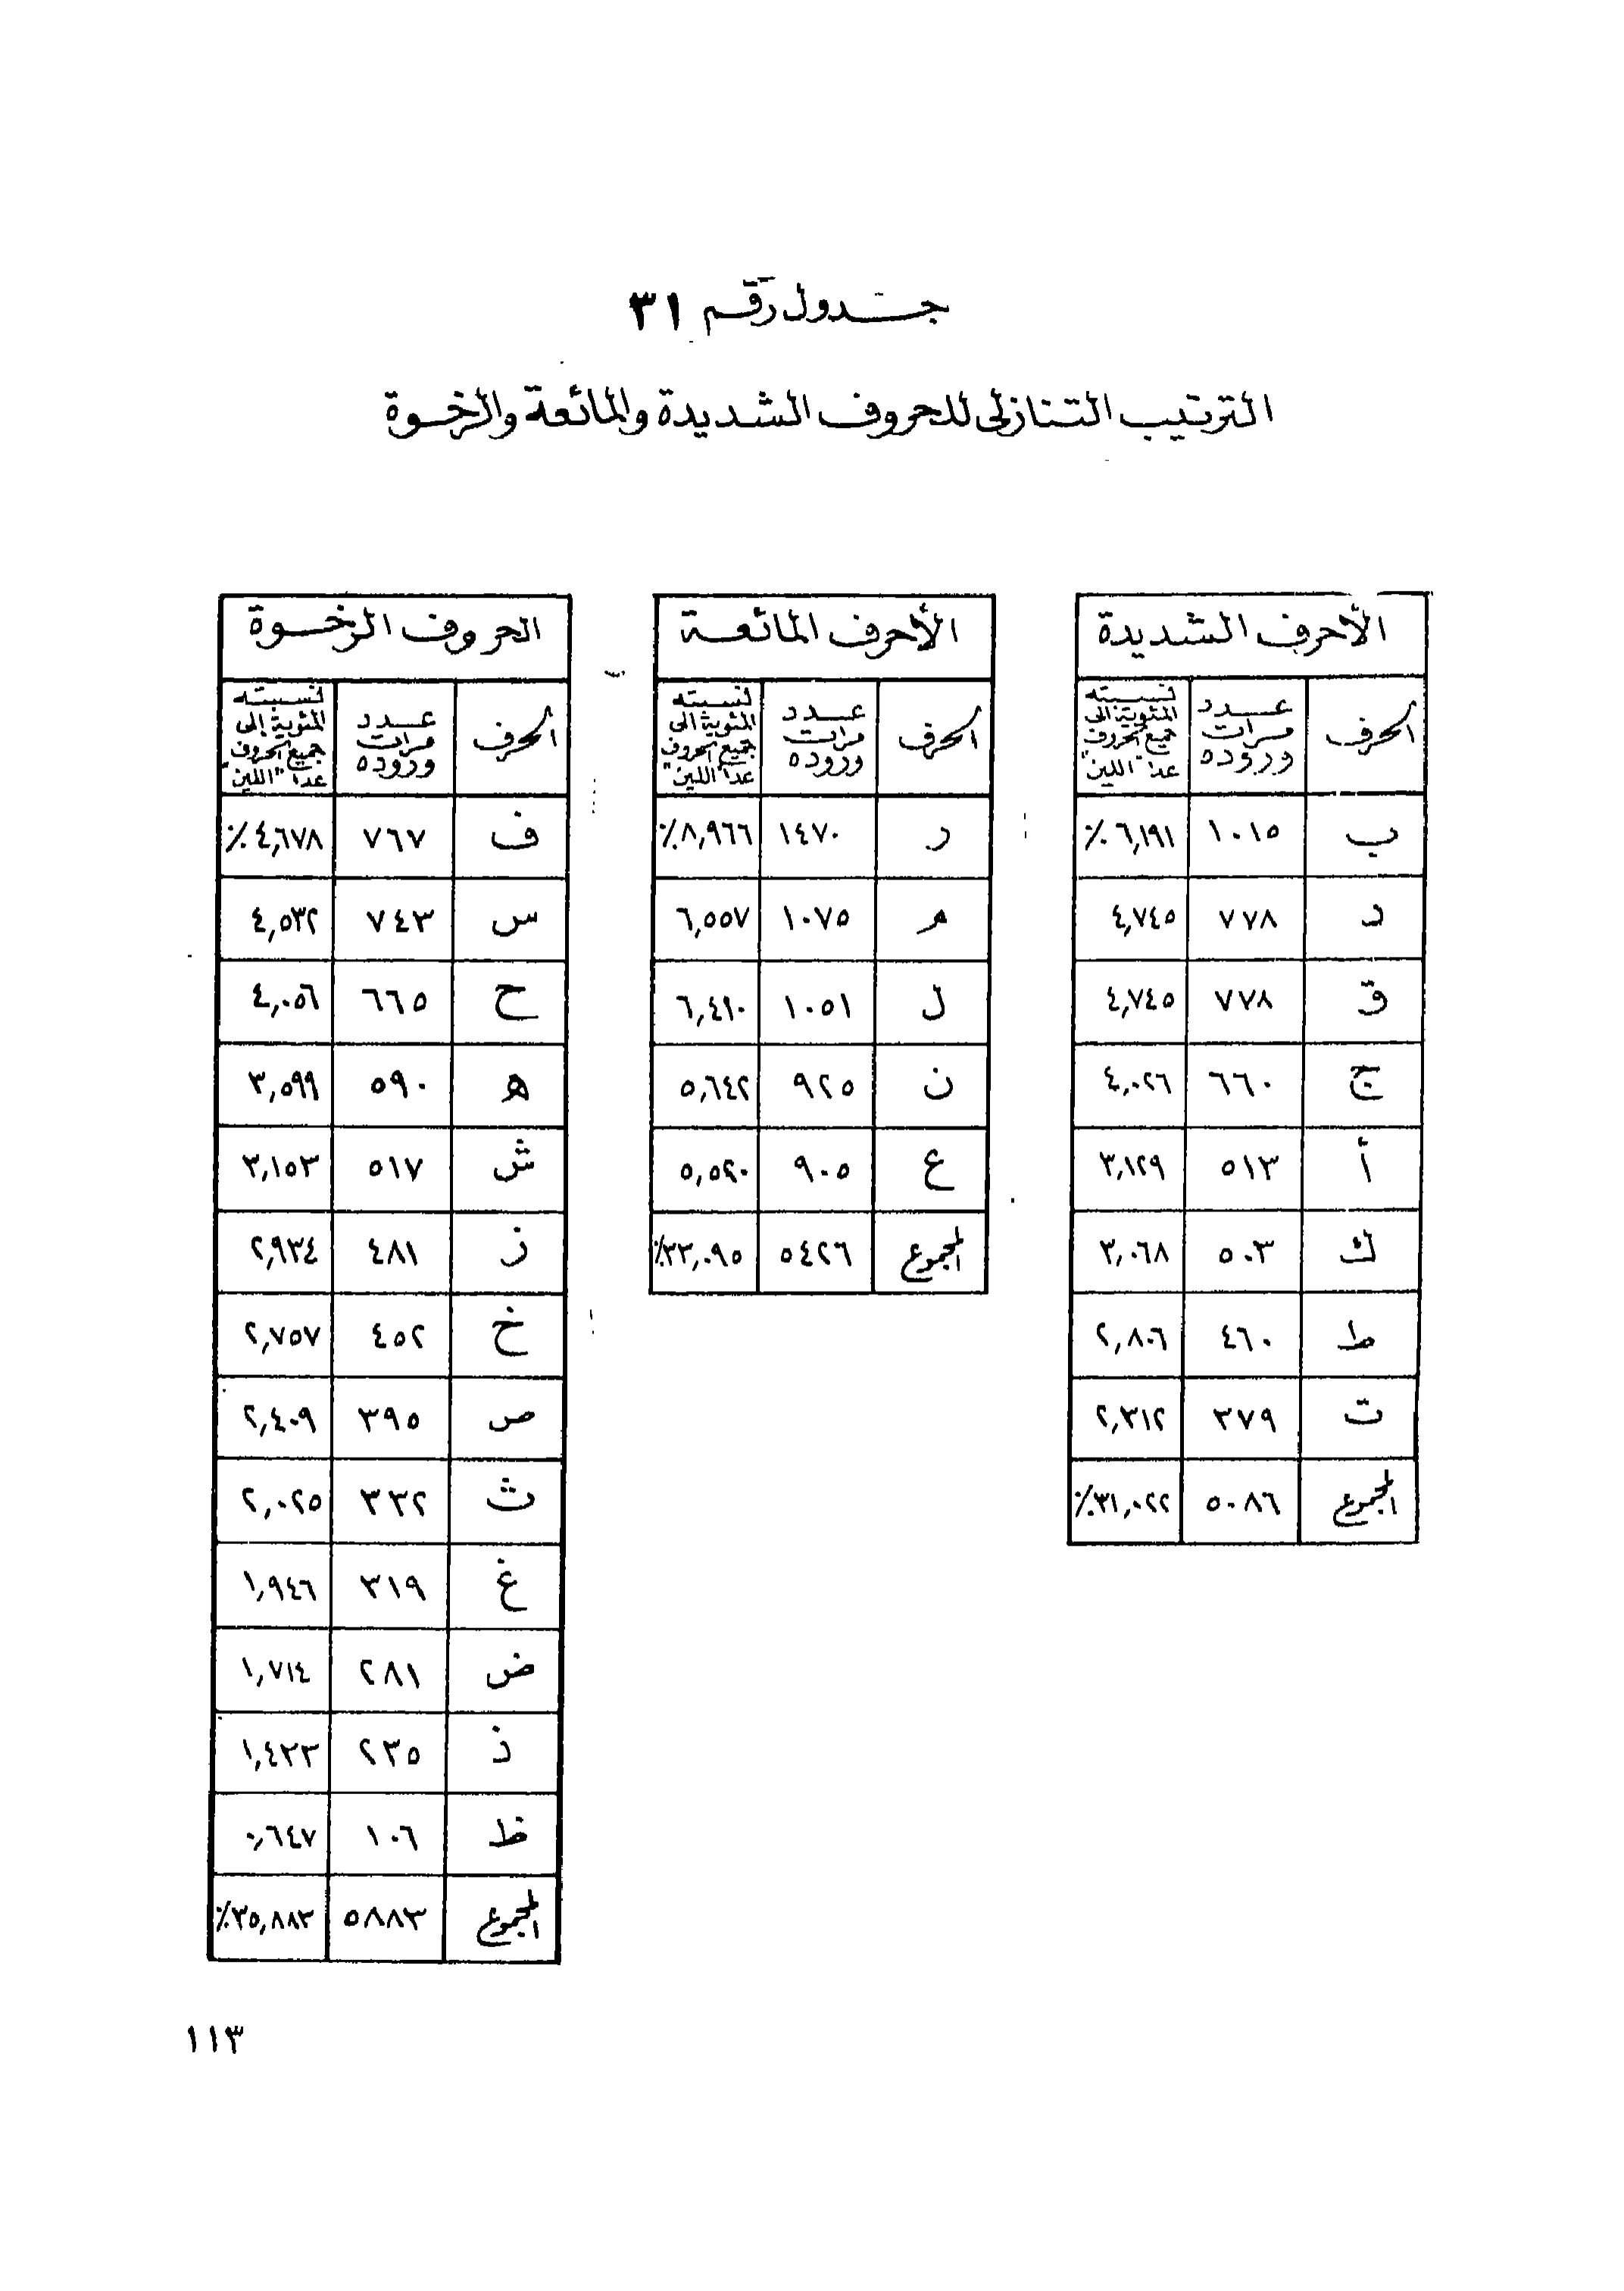 جدول رقم ٣١
الترتيب التنازلى للحروف الشديدة والمائعة والرخوة
الأحرف الشديدة
الحرف | عدد مرات وروده | نسبته المئوية الى جميع الحروف عدا "اللين"
ب | ١٠١٥ | ٦,١٩١ ٪
د | ٧٧٨ | ٤,٧٤٥
ق | ٧٧٨ | ٤,٧٤٥
ج | ٦٦٠ | ٤,٠٢٦
أ | ٥١٣ | ٣,١٢٩
ك | ٥٠٣ | ٣,٠٦٨
ط | ٤٦٠ | ٢,٨٠٦
ت | ٣٧٩ | ٢,٣١٢
المجموع | ٥٠٨٦ | ٣١,٠٢٢٪
الأحرف المائعة
الحرف | عدد مرات وروده | نسبته المئوية الى جميع الحروف عدا "اللين"
ر | ١٤٧٠ | ٨,٩٦٦٪
م | ١٠٧٥ | ٦,٥٥٧
ل | ١٠٥١ | ٦,٤١٠
ن | ٩٢٥ | ٥,٦٤٢
ع | ٩٠٥ | ٥,٥٢٠
المجموع | ٥٤٢٦ | ٣٣,٠٩٥٪
الحروف الرخوة
الحرف | عدد مرات وروده | نسبته المئوية إلى جميع الحروف عدا "اللين"
ف | ٧٦٧ | ٤,٦٧٨ ٪
س | ٧٤٣ | ٤,٥٣٢
ح | ٦٦٥ | ٤,٠٥٦
ه | ٥٩٠ | ٣,٥٩٩
ش | ٥١٧ | ٣,١٥٣
ز | ٤٨١ | ٢,٩٣٤
خ | ٤٥٢ | ٢,٧٥٧
ص | ٣٩٥ | ٢,٤٠٩
ث | ٣٣٢ | ٢,٠٢٥
غ | ٣١٩ | ١,٩٤٦
ض | ٢٨١ | ١,٧١٤
ذ | ٢٣٥ | ١,٤٣٣
ظ | ١٠٦ | ٠,٦٤٧
المجموع | ٥٨٨٣ | ٣٥,٨٨٣٪
١١٣